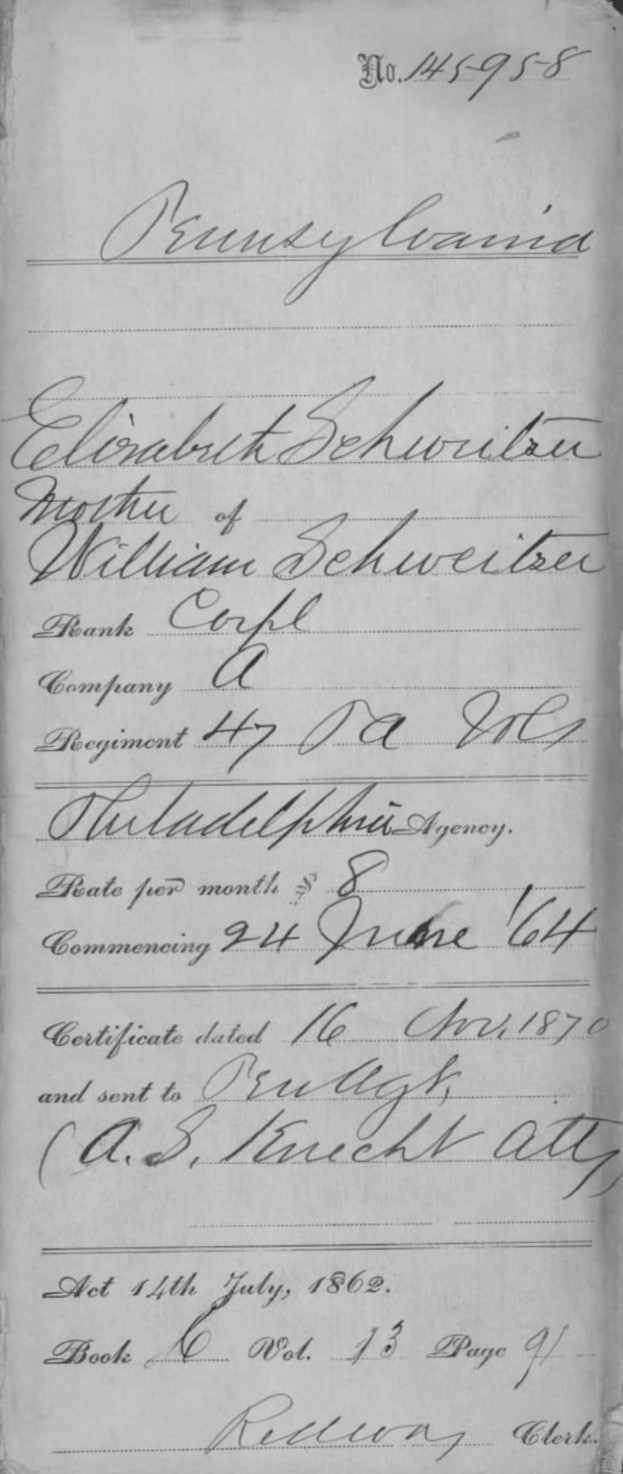 No. 145958
Pennsylvania
Elizabeth Schweitzer
Mother of
William Schweitzer
Rank Corpl
Company A
Regiment 47 Pa Vols
Philadelphia Agency.
Rate per month $ 8
Commencing 24 June '64
Certificate dated 16 Nov, 1870
and sent to Pen Agt,
(A. S. Knecht Atty)
Act 14th July, 1862.
Book Vol. 13 Page 91
Redway Clerk.